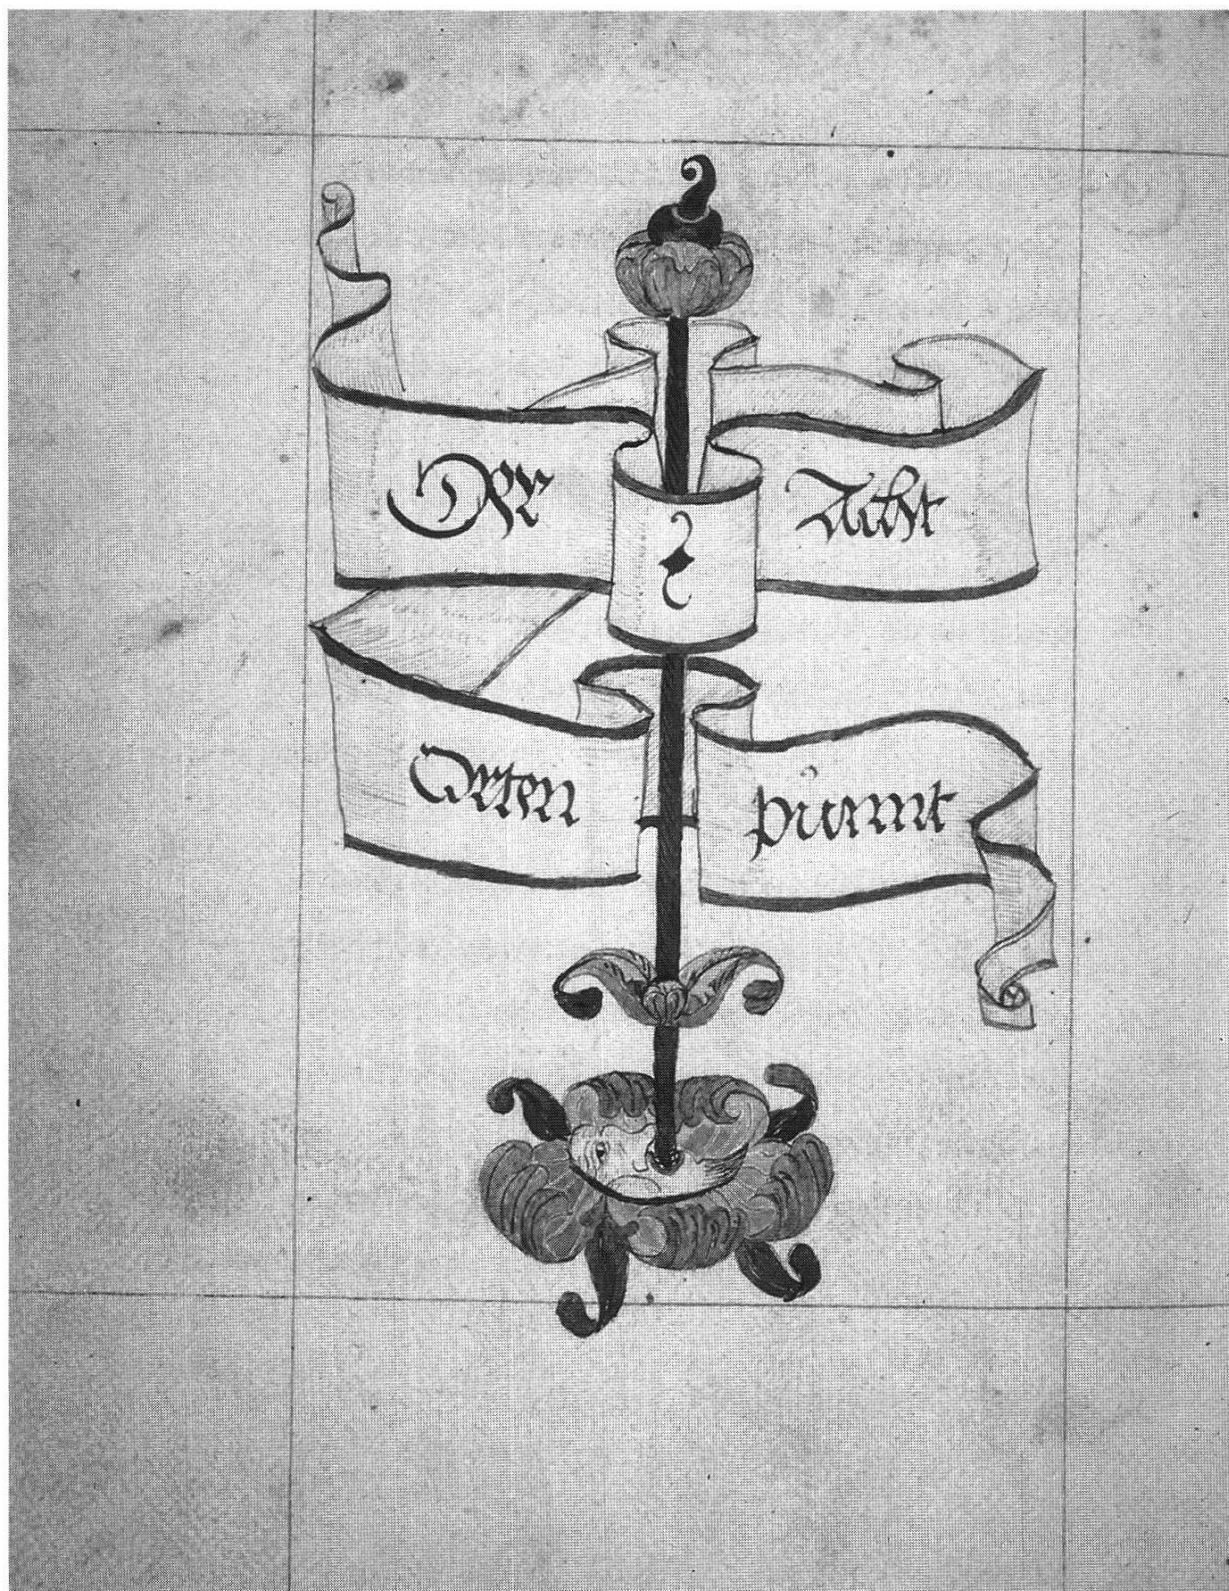 Der Acht
Orten půnnt